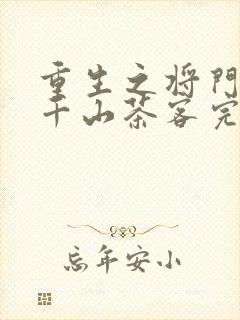 重生之将门
千山茶客完
忘年安小